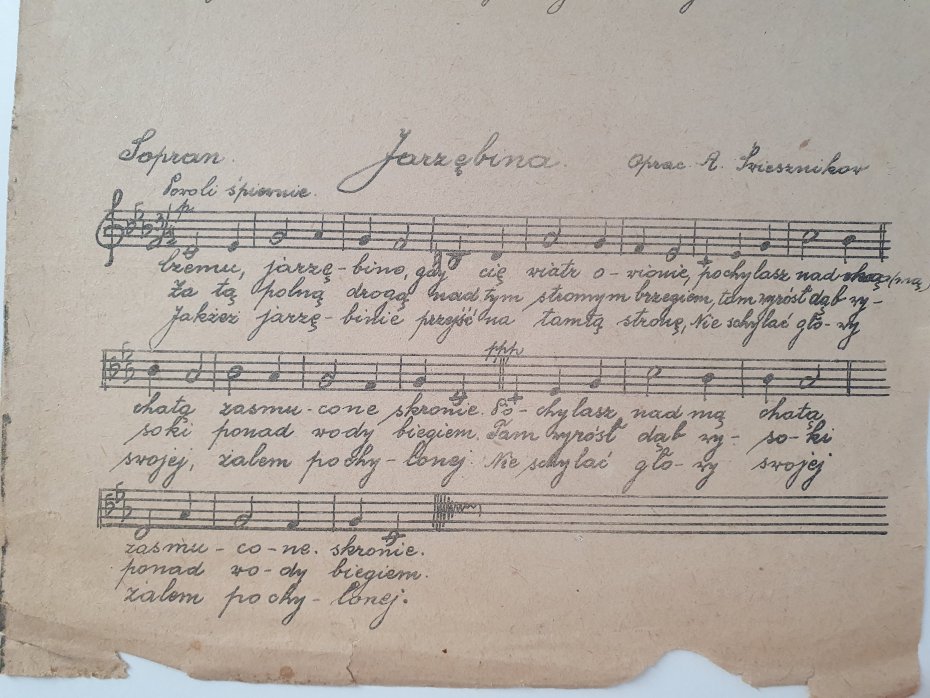 Sopran. Jarzębina. Oprac A. Świesznikow
Powoli śpiewnie.
p
Czemu, jarzę-bino, gdy cię wiatr o-wionie, pochylasz nad (mą)
Za tą polną drogą nad tym stromym brzegiem, tam wyrósł dąb wy-
Jakżeż jarzę-binie przejść na tamtą stronę, Nie schylać gło-wy
ppp
chatą zasmu-cone skronie. Po-chylasz nad mą chatą
soki ponad wody biegiem. Tam wyrósł dąb wy-so-ki
swojej, żalem pochy-lonej. Nie schylać gło-wy swojej
zasmu-co-ne. skronie.
ponad wo-dy biegiem.
żalem pochy-lonej.